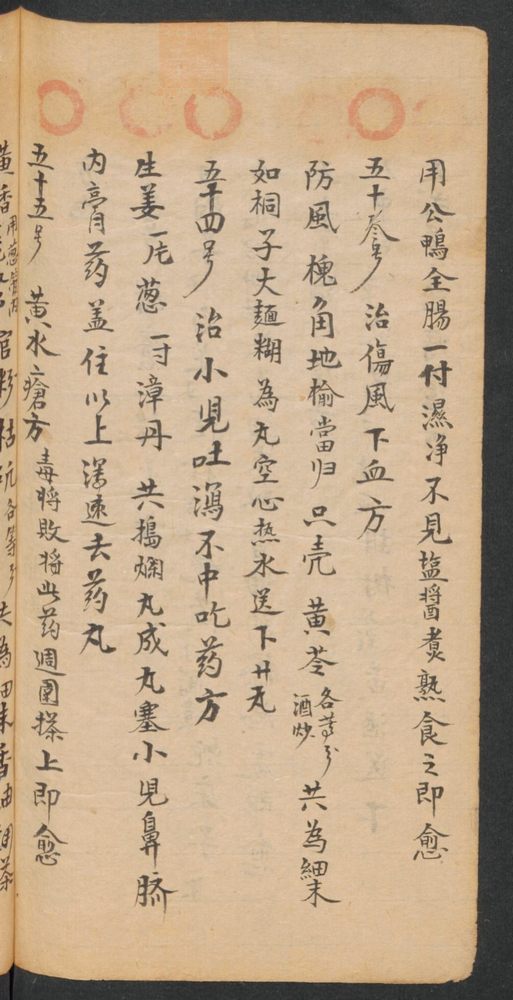 用公鴨全腸一付濕净不見盐醬煮熟食之即愈
五十叁号 治傷風下血方
防風 槐角地榆當归 只壳 黄芩 各等分 酒炒 共為細末
如桐子大麵糊為丸空心热水送下廿丸
五十四号 治小児吐瀉不中吃药方
生姜一片葱一寸漳丹 共搗爛丸成丸塞小児鼻臍
内膏药盖住以上瀉速去药丸
五十五号 黄水瘡方 毒將敗將此药週圍搽上即愈
黄香 用葱 官粉枯矾各等分共為田末香油調搽